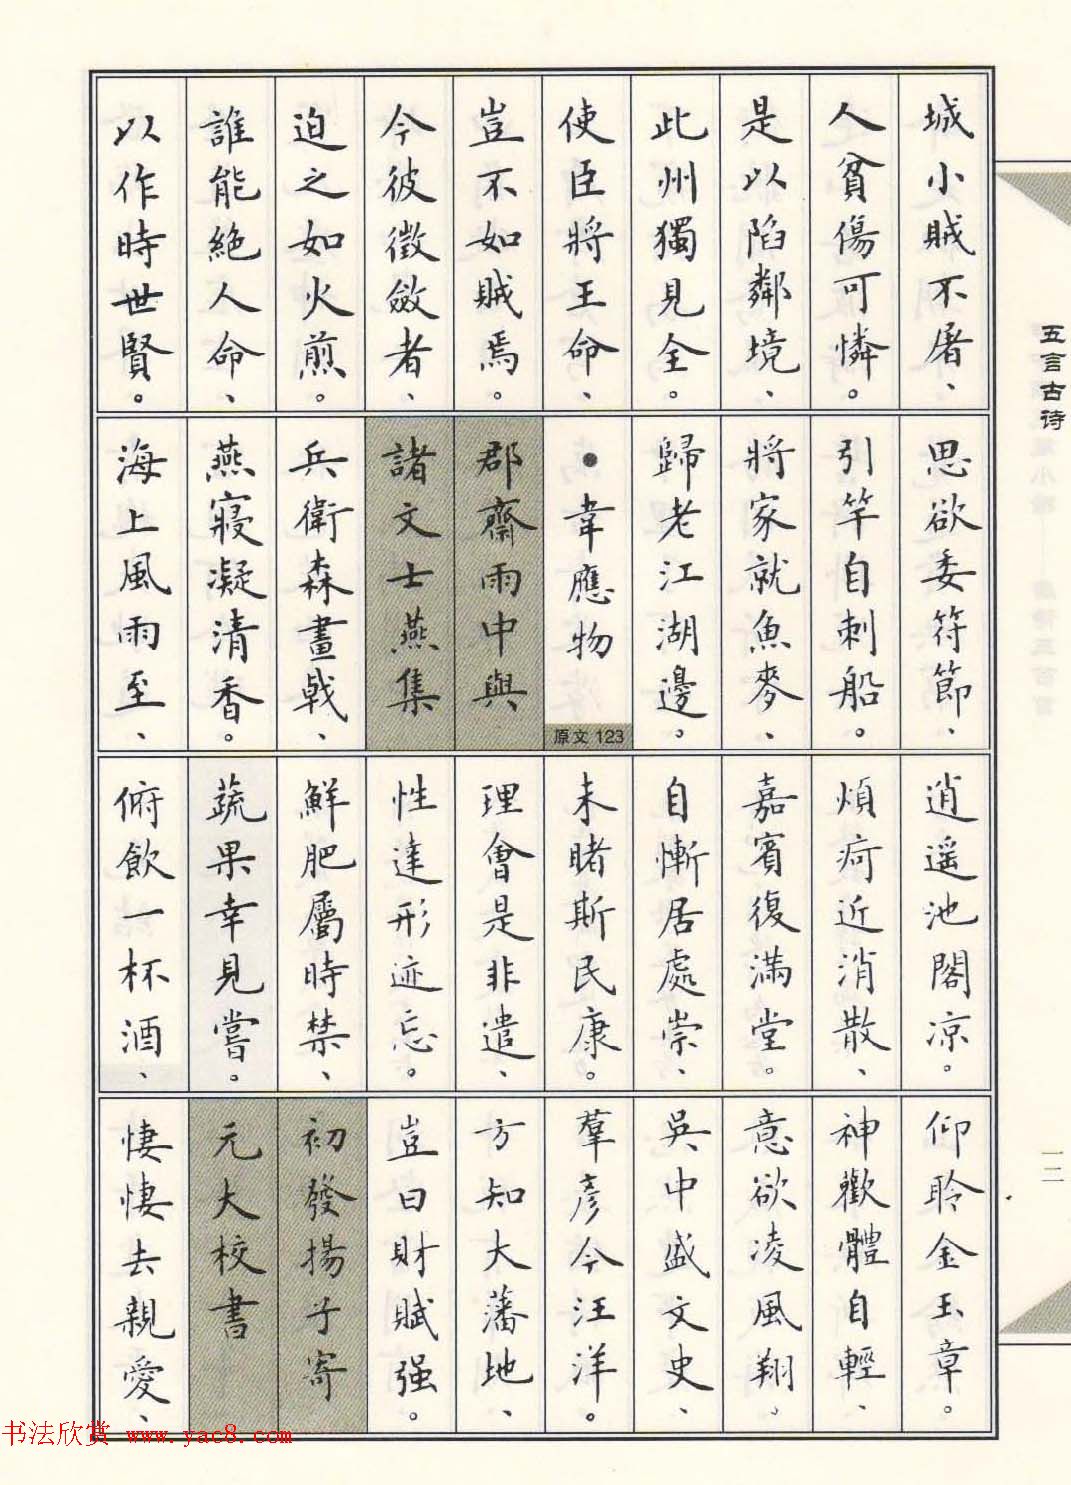 城小賊不屠、
人貧傷可憐。
是以陷鄰境、
此州獨見全。
使臣將王命、
豈不如賊焉。
今彼徵斂者、
迫之如火煎。
誰能絕人命、
以作時世賢。
思欲委符節、
引竿自刺船。
將家就魚麥、
歸老江湖邊。
●韋應物
原文 123
郡齋雨中與
諸文士燕集
兵衛森畫戟、
燕寢凝清香。
海上風雨至、
逍遥池閣凉。
煩疴近消散、
嘉賓復滿堂。
自慚居處崇、
未睹斯民康。
理會是非遣、
性達形迹忘。
鮮肥屬時禁、
蔬果幸見嘗。
俯飲一杯酒、
仰聆金玉章。
神歡體自輕、
意欲凌風翔。
吳中盛文史、
羣彥今汪洋。
方知大藩地、
豈曰財賦强。
初發揚子寄
元大校書
悽悽去親愛、
五言古诗
一二
书法欣赏 www.yac8.com